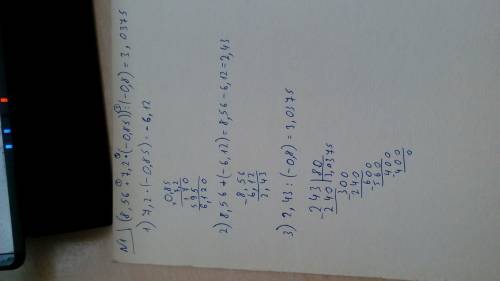 №1 (8,56 + 7,2 · (-0,85)) : (-0,8) = 3,0375
1) 7,2 · (-0,85) = -6,12
0,85
7,2
170
595
6,120
2) 8,56 + (-6,12) = 8,56 - 6,12 = 2,43
-8,56
6,12
2,43
3) 2,43 : (-0,8) = 3,0375
-243 | 80
240 | 3,0375
-300
240
-600
560
-400
400
0